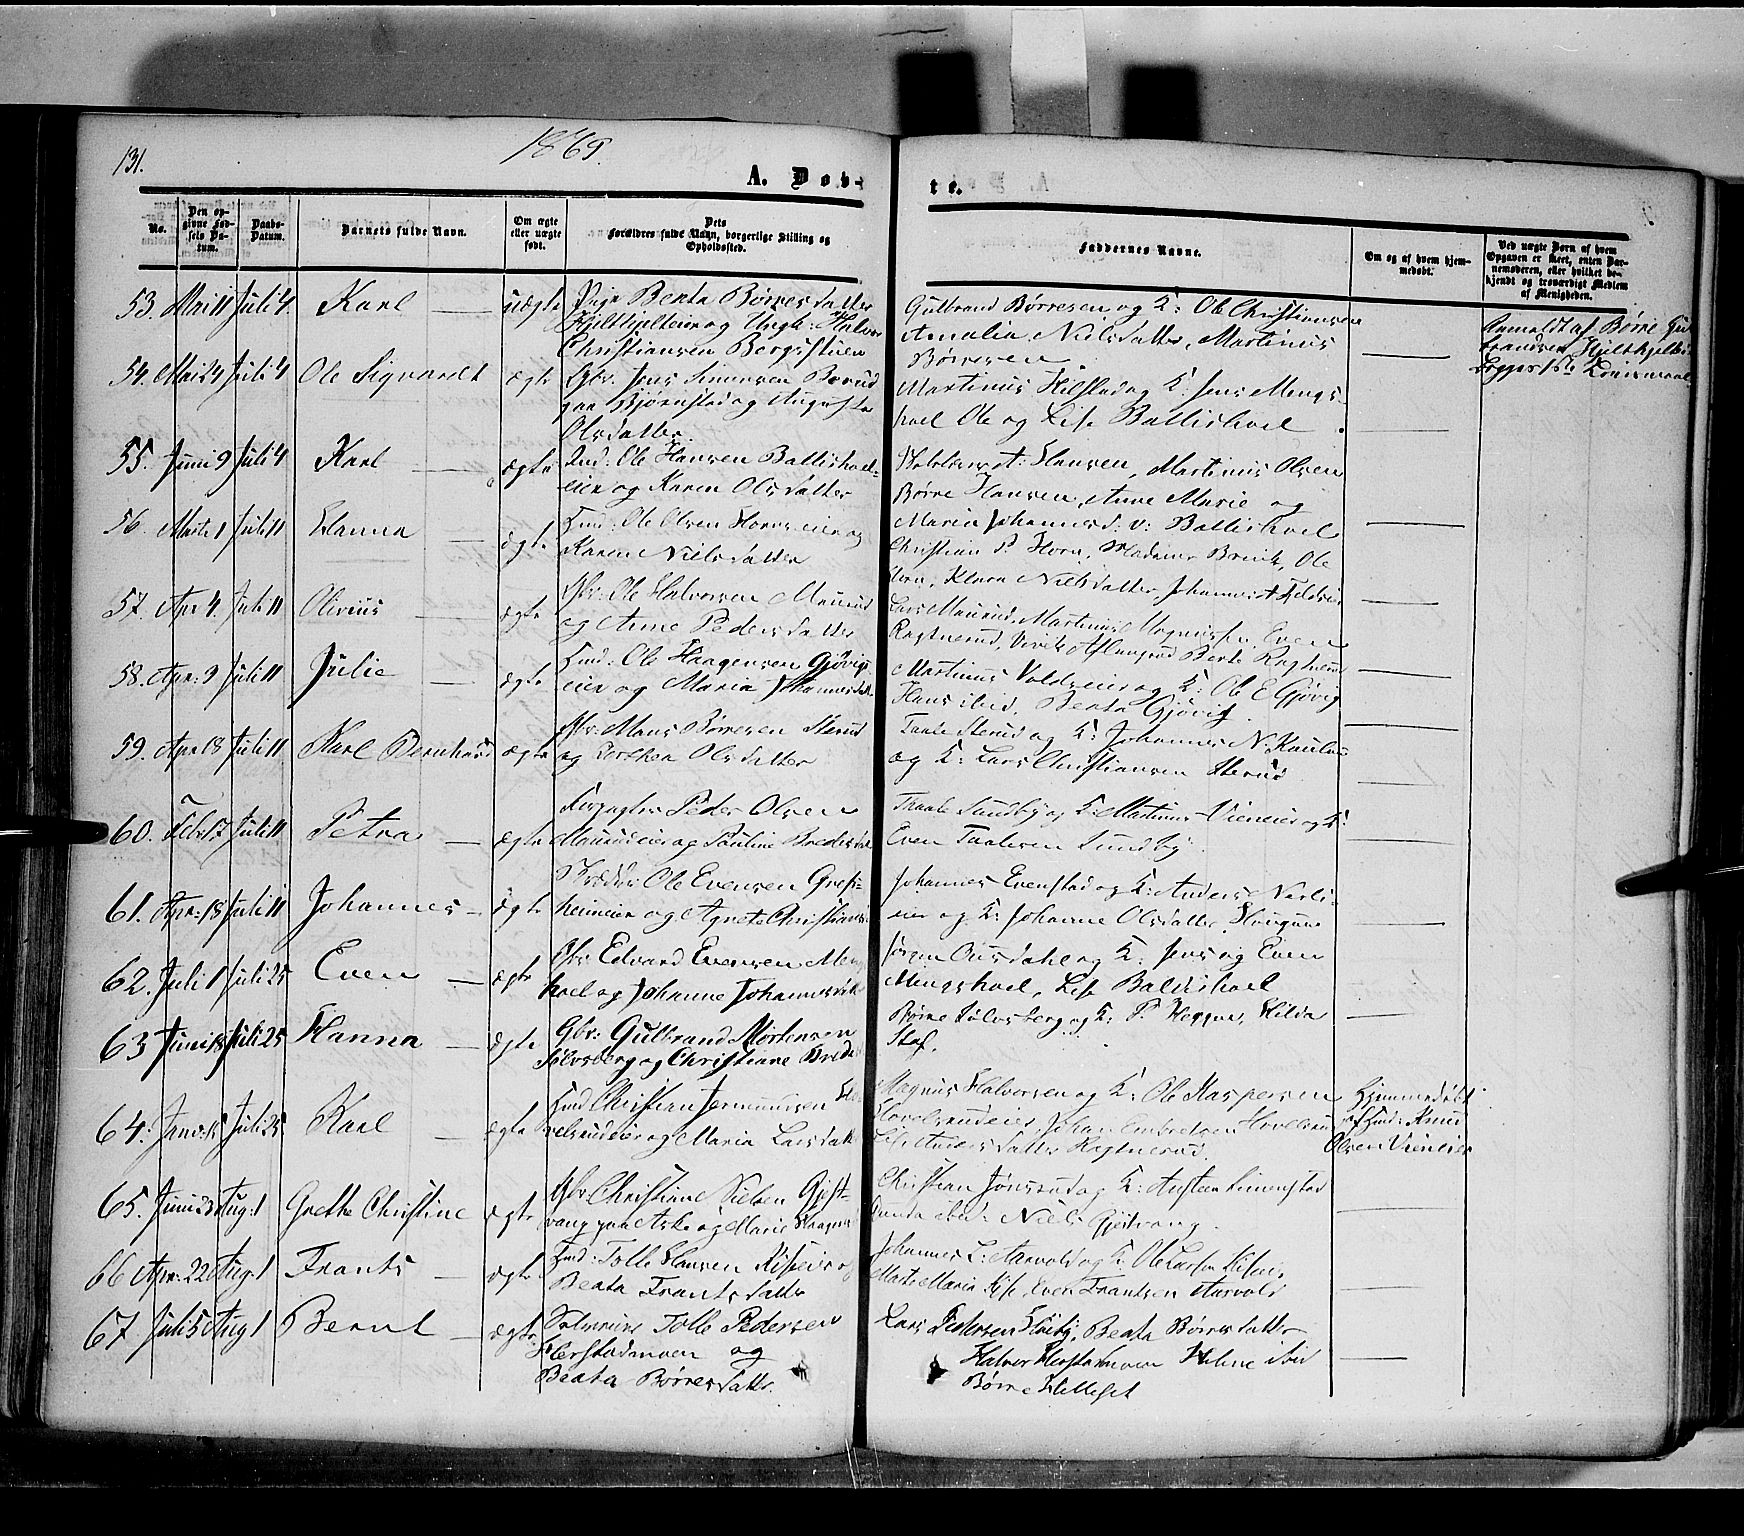 131.
1869.
A. Døb-
te.
No.
Den op-
givne Fød-
sels Da-
tum.
Daabs-
Datum.
Barnets fulde Navn.
Om ægte
eller uægte
født.
Dets
Forældres fulde Navn, borgerlige Stilling og
Opholdssted.
Faddernes Navne.
Om og af hvem hjem-
medøbt.
Ved uægte Børn af hvem
Opgaven er skeet, enten Bar-
nemoderen, eller hvilket be-
kjendt og troværdigt Medlem
af Menigheden.
53. Mai 11 Juli 4. Karl uægte Pige Beata Børresdatter
Hjeltkjelteie og Ungk: Halvor
Christiansen Bergsstuen
Gulbrand Børresen og K: Ole Christiansen
Amalia Nielsdatter, Martinus
Børresen
Anmeldt af Børre Gul
brandsen Hjeltkjelt
54. Mai 24 Juli 4 Ole Sigvardt ægte Gbr: Jens Simensen Berud
paa Bjørnstad og Augusta
Olsdatter.
Martinus Kilstad og K: Jens Mengs-
hoel Ole og Lise Ballishoel
55. Juni 9 Juli 4 Karl ægte Ind: Ole Hansen Ballishoel-
eier og Karen Olsdatter
Hansen, Martinus Olsen
Børre Hansen, Anne Marie og
Maria Johannesd: v: Ballishoel
56. Marts 1 Juli 11 Hanna ægte Hmd: Ole Olsen Horns eie og
Karen Nielsdatter
Christian P Horn, Ole
Horn, Klara Nielsdatter, Johannes
57. Apr 4. Juli 11 Olivius ægte Gbr: Ole Halvorsen Maurud
og Anne Pedersdatter
Lars Maurud, Martinus Magnussen, Even
Ragtnerud, Berte Ragtnerud
58. Apr: 9 Juli 11 Julie ægte Hmd: Ole Haagensen Gjøvigs
eier og Maria Johannesdatt
Martinus Voldseier og K: Ole E Gjøvig
Hans ibid. Beata Gjøvig.
59. Apr 18 Juli 11 Karl Bernhard ægte Gbr: Mans Børresen Sterud
og Dorthea Olsdatter
Taale Sterud og K: Johannes N.
og K: Lars Christiansen Sterud
60. Febr 17 Juli 11 Petra ægte Forpagter Peder Olsen
Maurudeie og Pauline Bredesdat
Taale Sundby og K: Martinus Vieneie og K:
Even Taalesen Sundby.
61. Apr: 18 Juli 11 Johannes ægte Skrædder Ole Evensen Gres-
heimeie og Agnete Christians
Johannes Evenstad og K: Anders Nerli-
eie og K: Johanne Olsdatter
62. Juli 1 Juli 25 Even ægte Gbr: Edvard Evensen Mengs
hoel og Johanne Johannesdatt
Jørgen og K: Jens og Even
Mengshoel, Lise Baldishoel
63 Juni 18 Juli 25 Hanna ægte Gbr: Gulbrand Mortensen
Sølvsberg og Christiane Brede
Børre Sølvsberg og K: P. Heggen, Hilda
Staf.
64: Janv: 15 Juli 25 Karl ægte Hmd Christian Jermundsen Ho
velsrudeie og Maria Larsdatt
Magnus Halvorsen og K: Ole Kaspersen
Hovelsrudeie, Johan Embretsen Hovelsrud
Andersdatter Ragtnerud.
Hjemmedøbt
af Hmd: Knud
Olsen Vieneie
65. Juni 23 Aug: 1 Grethe Christine ægte Gbr: Christian Nielsen Gjest-
vang paa Aske og Marie Haagens
Christian Jønsrud og K: Austeen Simenstad
ibid: Niels Gjestvang.
66 Apr: 22 Aug: 1 Frants ægte Hmd: Tolle Hansen Kiseie og
Beata Frantsdatter
Johannes L: Aarvold og K: Ole Larsen Kiseie,
Marte Maria Kise, Even Frantsen Aarvold
67 Juli 5 Aug 1 Bernt ægte Tolle Pedersen
Herstadmoen og
Beata Børresdatter.
Lars Pedersen, Beata Børresdatter
Halvor Herstadmoen Helene ibid
Børre Helleset